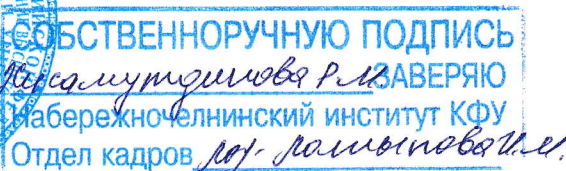 СОБСТВЕННОРУЧНУЮ ПОДПИСЬ
Хисамутдинова Р.М. ЗАВЕРЯЮ
Набережночелнинский институт КФУ
Отдел кадров